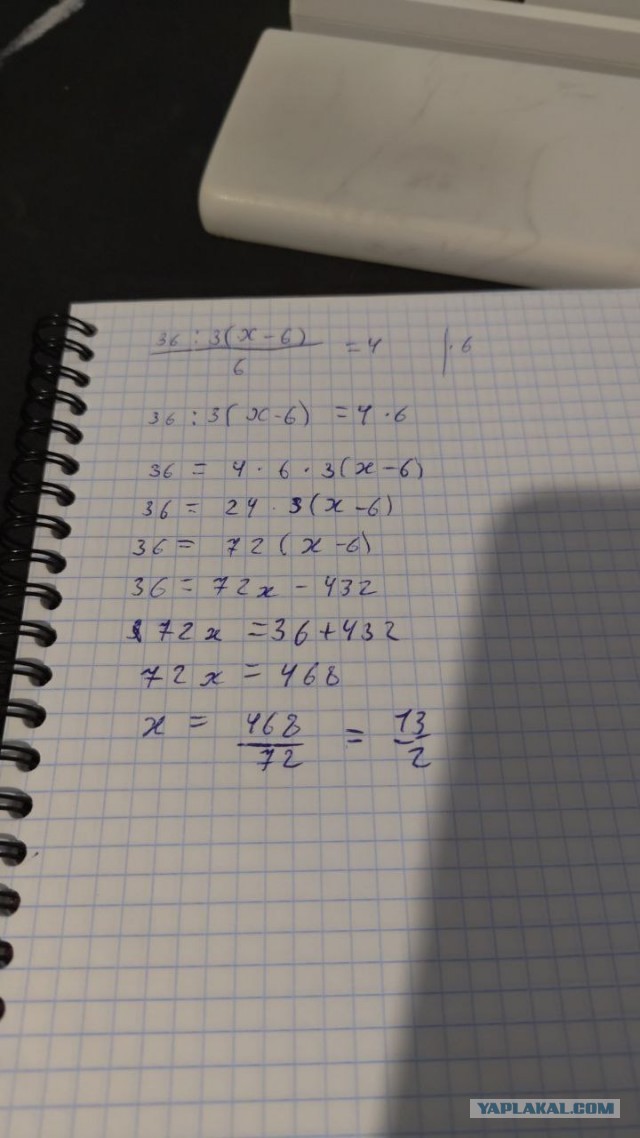 36 : 3(x-6) / 6 = 4 | · 6
36 : 3(x-6) = 4 · 6
36 = 4 · 6 · 3(x-6)
36 = 24 · 3(x-6)
36 = 72(x-6)
36 = 72x - 432
72x = 36+432
72x = 468
x = 468/72 = 13/2
YAPLAKAL.COM